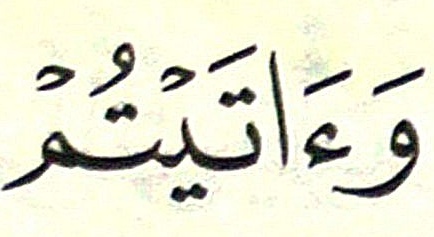 وَءَاتَيْتُمْ